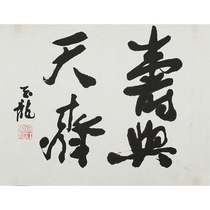 壽與
天齊
玉龍